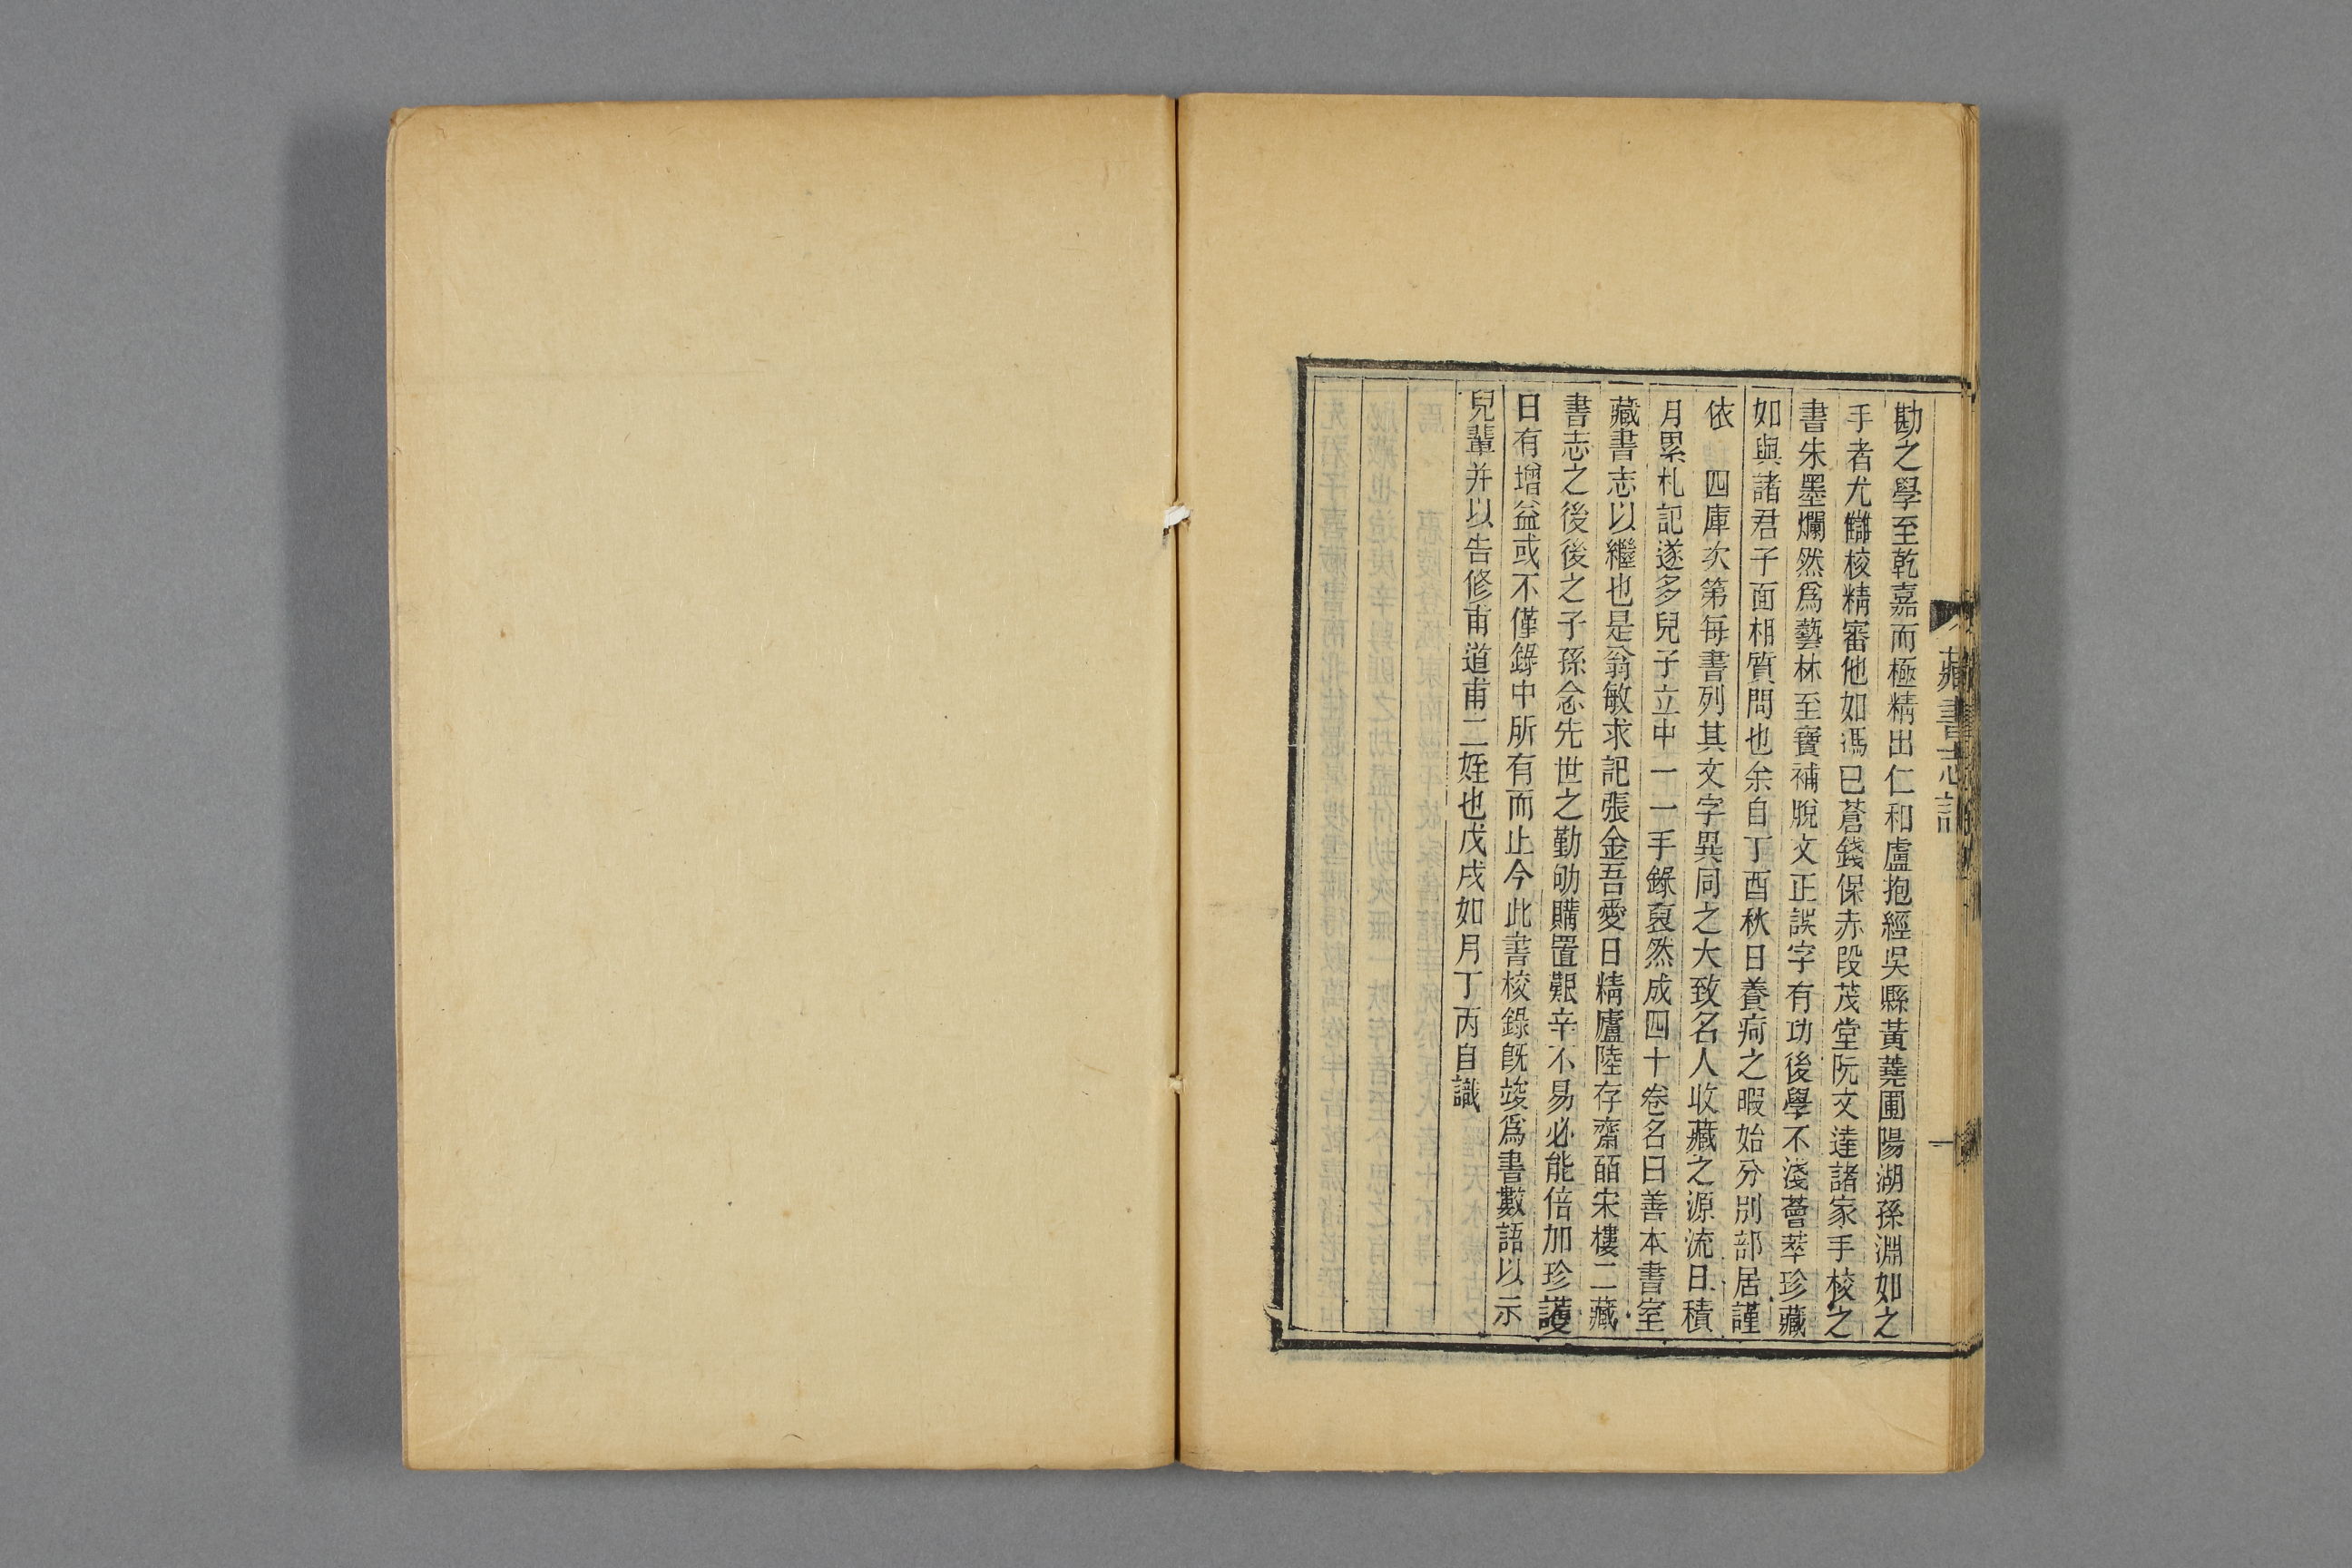 勘之學至乾嘉而極精出仁和盧抱經吳縣黃蕘圃陽湖孫淵如之
手者尤讎校精審他如馮已蒼錢保赤段茂堂阮文達諸家手校之
書朱墨爛然爲藝林至寶補脫文正誤字有功後學不淺薈萃珍藏
如與諸君子面相質問也余自丁酉秋日養疴之暇始分別部居謹
依　四庫次第每書列其文字異同之大致名人收藏之源流日積
月累札記遂多兒子立中一一手錄裒然成四十卷名曰善本書室
藏書志以繼也是翁敏求記張金吾愛日精廬陸存齋皕宋樓二藏
書志之後後之子孫念先世之勤劬購置艱辛不易必能倍加珍護
日有增益或不僅錄中所有而止今此書校錄旣竣爲書數語以示
兒輩并以告修甫道甫二姪也戊戌如月丁丙自識